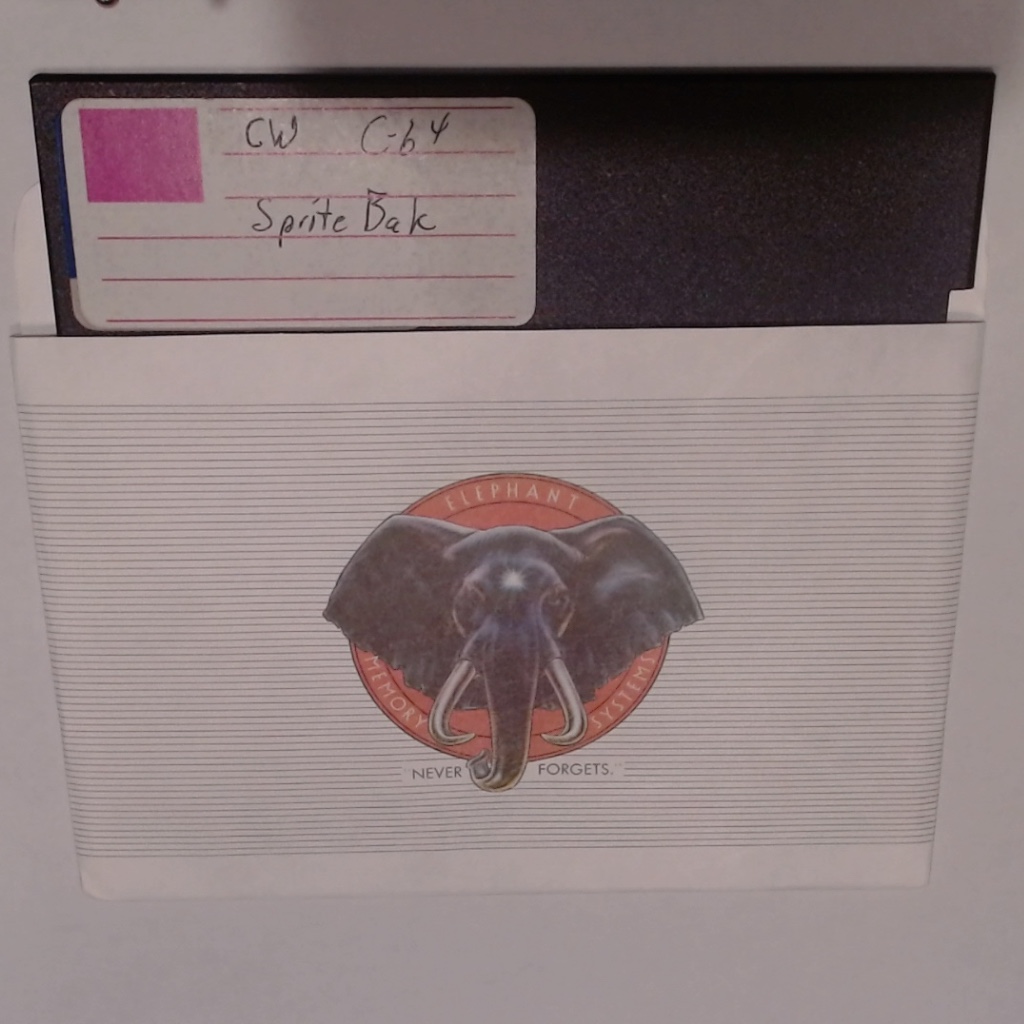 CW C-64
Sprite Bak
ELEPHANT
MEMORY SYSTEMS
"NEVER FORGETS."